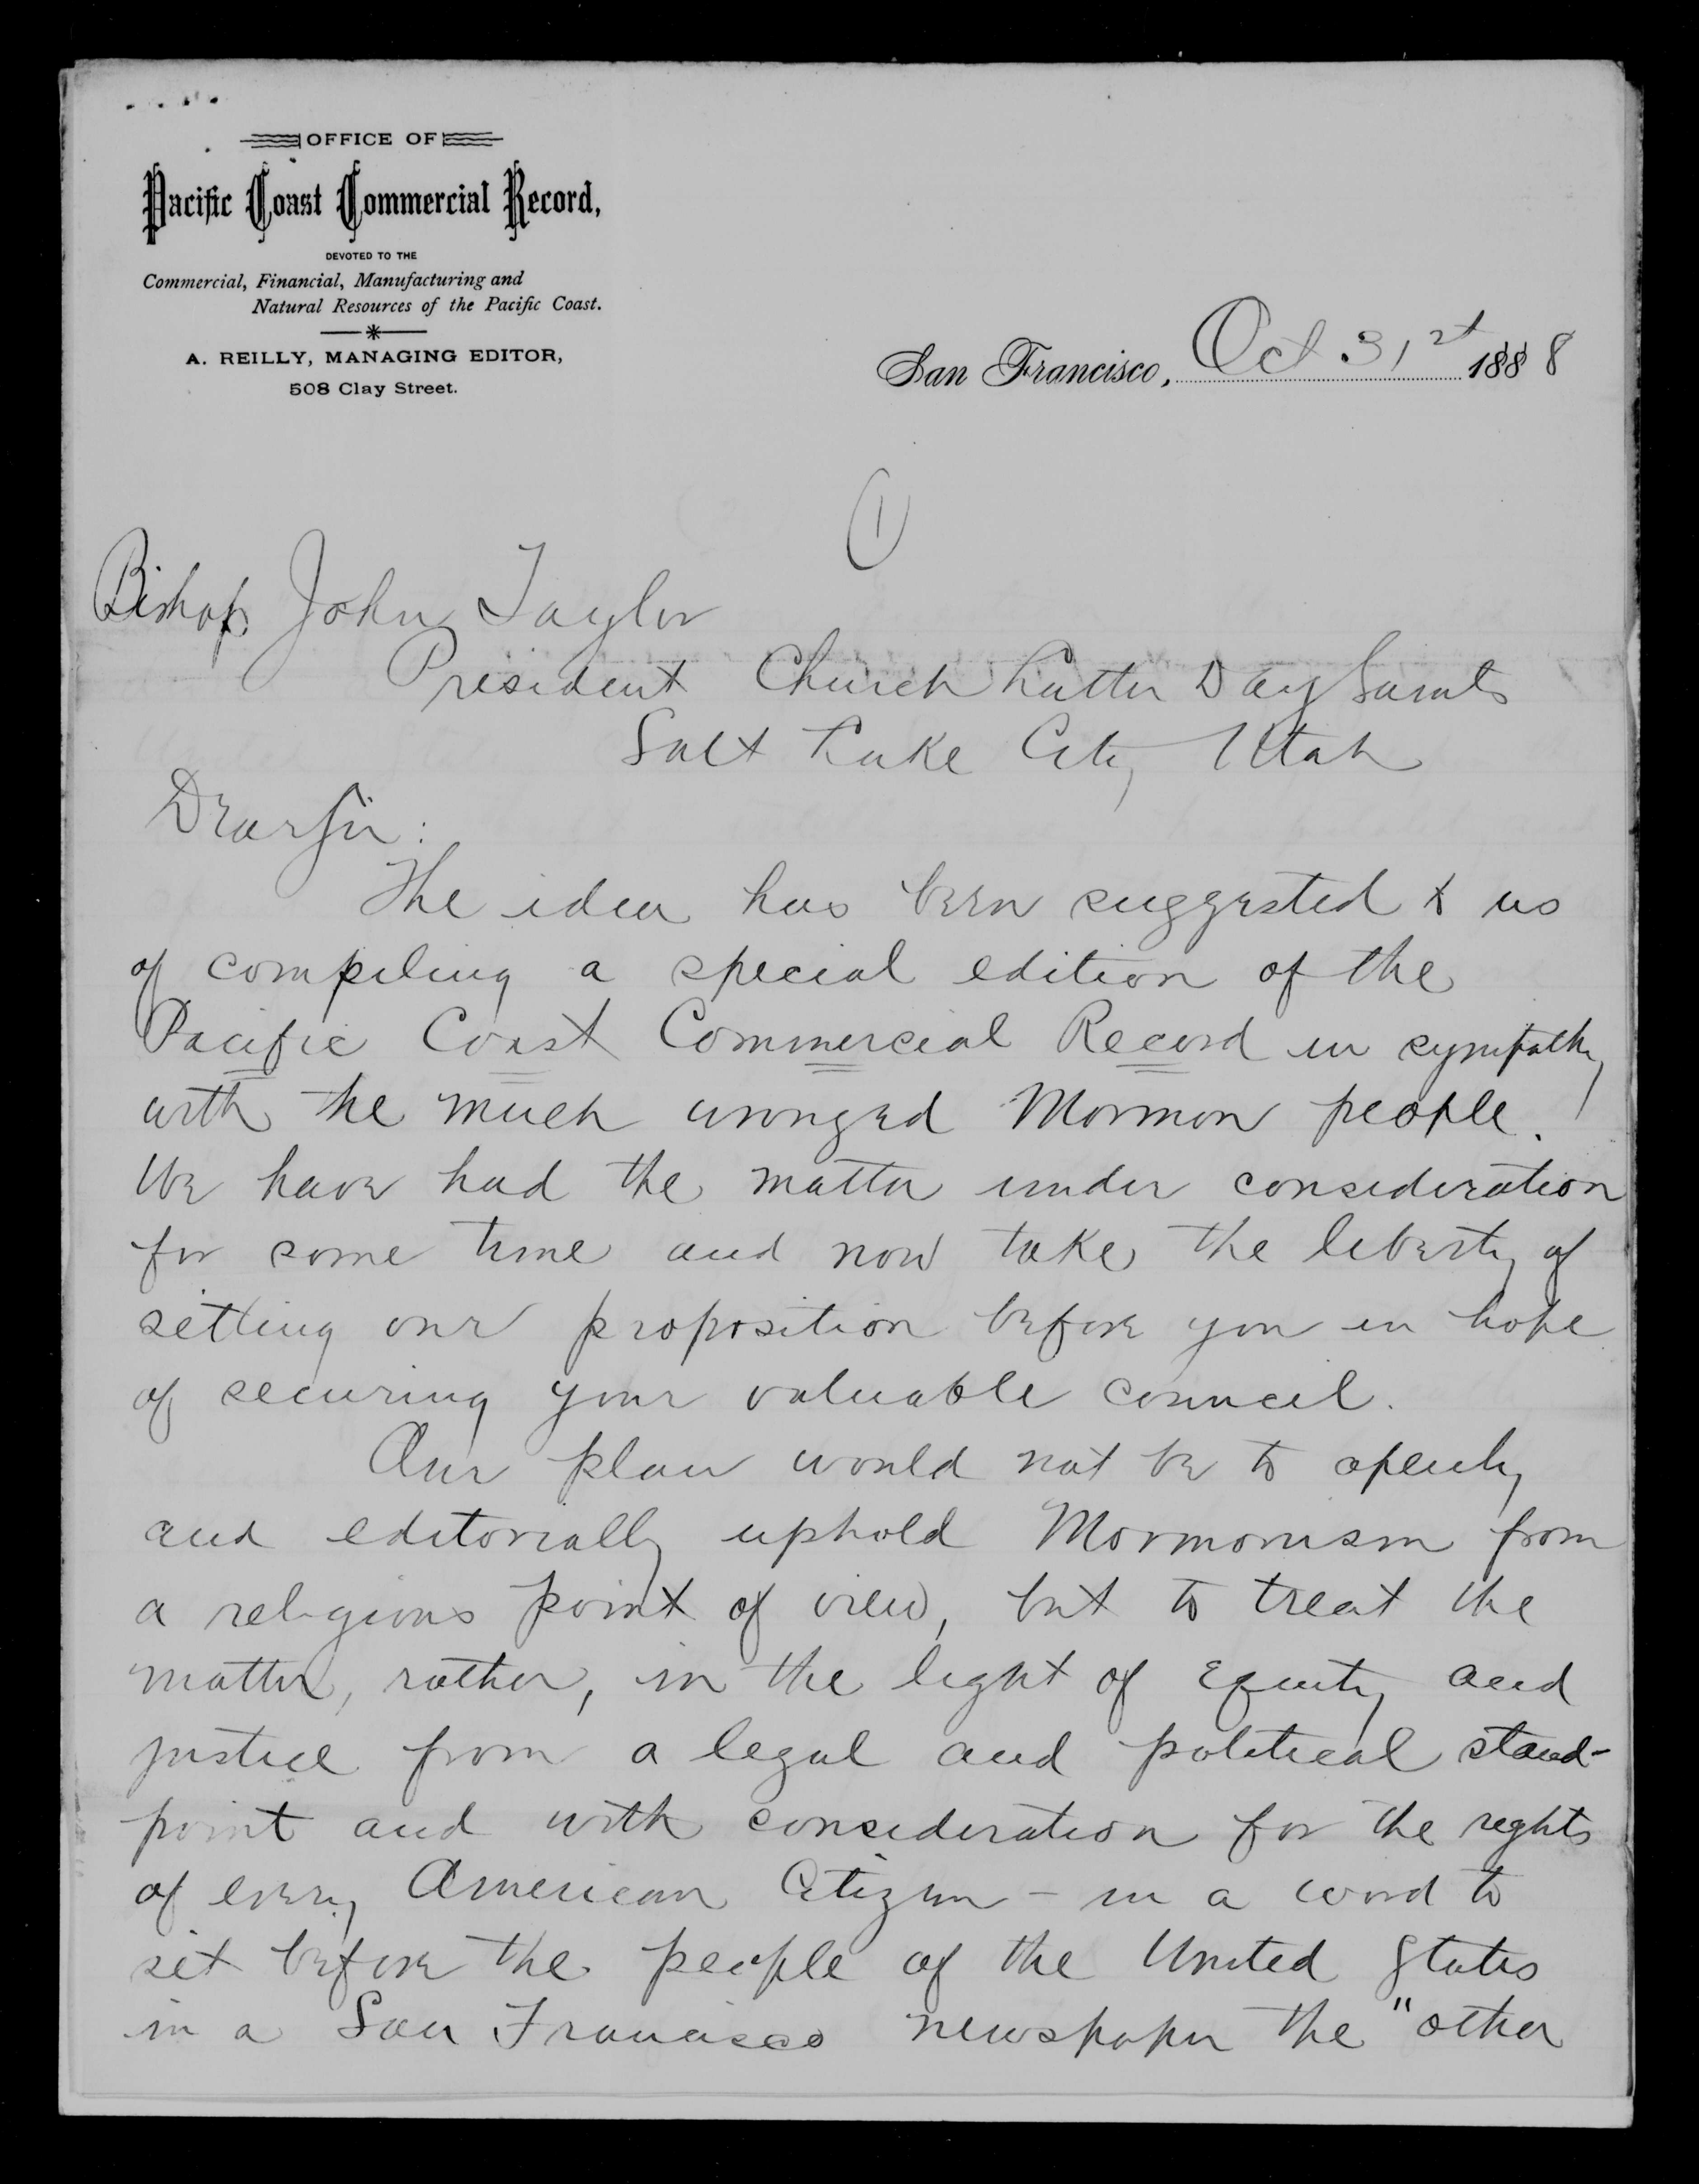 OFFICE OF
Pacific Coast Commercial Record,
DEVOTED TO THE
Commercial, Financial, Manufacturing and
Natural Resources of the Pacific Coast.
A. REILLY, MANAGING EDITOR,
508 Clay Street.
San Francisco, Oct 31st 1888
(1)
Bishop John Taylor
President Church Latter Day Saints
Salt Lake City Utah
Dear Sir:
The idea has been suggested to us
of compiling a special edition of the
Pacific Coast Commercial Record in sympathy
with the much wronged Mormon people.
We have had the matter under consideration
for some time and now take the liberty of
setting our proposition before you in hope
of securing your valuable council.
Our plan would not be to openly
and editorially uphold Mormonism from
a religious point of view, but to treat the
matter, rather, in the light of equity and
justice from a legal and political stand-
point and with consideration for the rights
of every American Citizen - in a word to
set before the people of the United States
in a San Francisco newspaper the "other